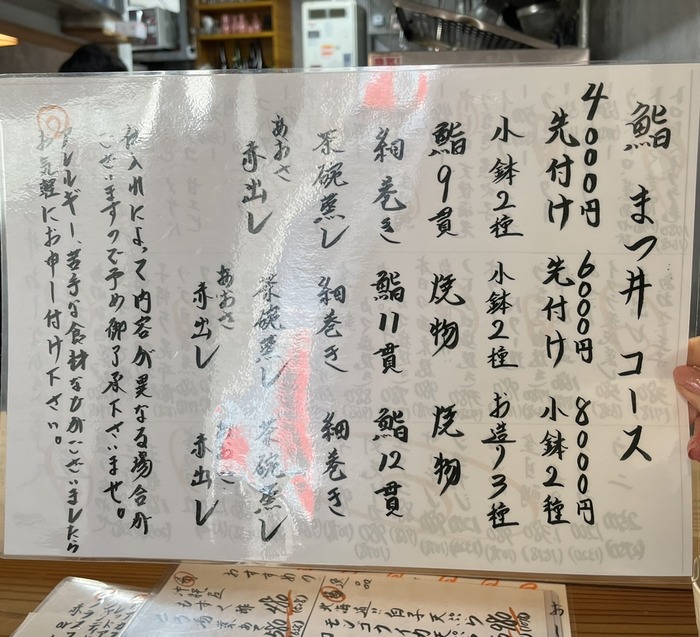 鮨 まつ井 コース
4000円
先付け
小鉢2種
鮨9貫
細巻き
茶碗蒸し
あおさ
赤出し
6000円
先付け
小鉢2種
焼物
鮨11貫
細巻き
茶碗蒸し
あおさ
赤出し
8000円
小鉢2種
お造り3種
焼物
鮨12貫
細巻き
茶碗蒸し
あおさ
赤出し
仕入れによって内容が異なる場合が
ございますので予め御了承下さいませ。
アレルギー、苦手な食材などがございましたら
お気軽にお申し付け下さい。
おすすめ
もずく酢
北海道 白子天ぷら
モンゴウイカ天ぷら